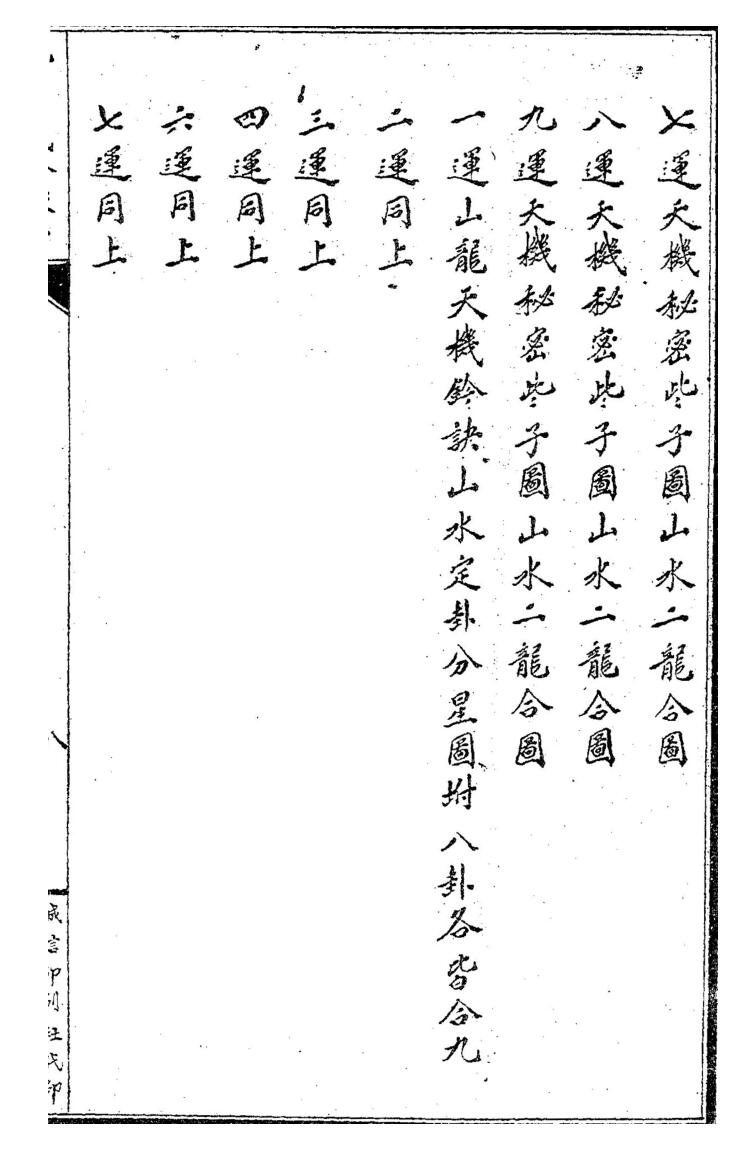 七運天機秘密些子圖山水二龍合圖
八運天機秘密些子圖山水二龍合圖
九運天機秘密些子圖山水二龍合圖
一運山龍天機鈴訣山水定卦分星圖坿八卦各皆合九
二運同上
三運同上
四運同上
六運同上
七運同上